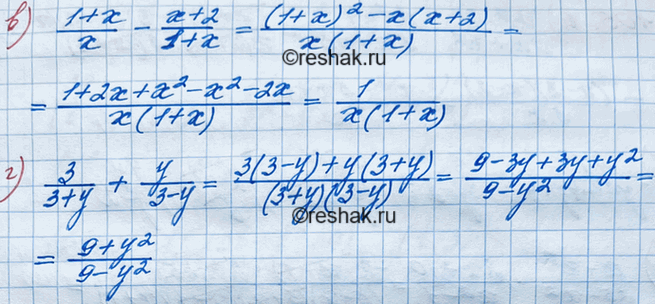 в) (1+x)/x - (x+2)/(1+x) = ((1+x)² - x(x+2))/(x(1+x)) =
©reshak.ru
= (1+2x+x²-x²-2x)/(x(1+x)) = 1/(x(1+x))
г) 3/(3+y) + y/(3-y) = (3(3-y)+y(3+y))/((3+y)(3-y)) = (9-3y+3y+y²)/(9-y²) =
©reshak.ru
= (9+y²)/(9-y²)